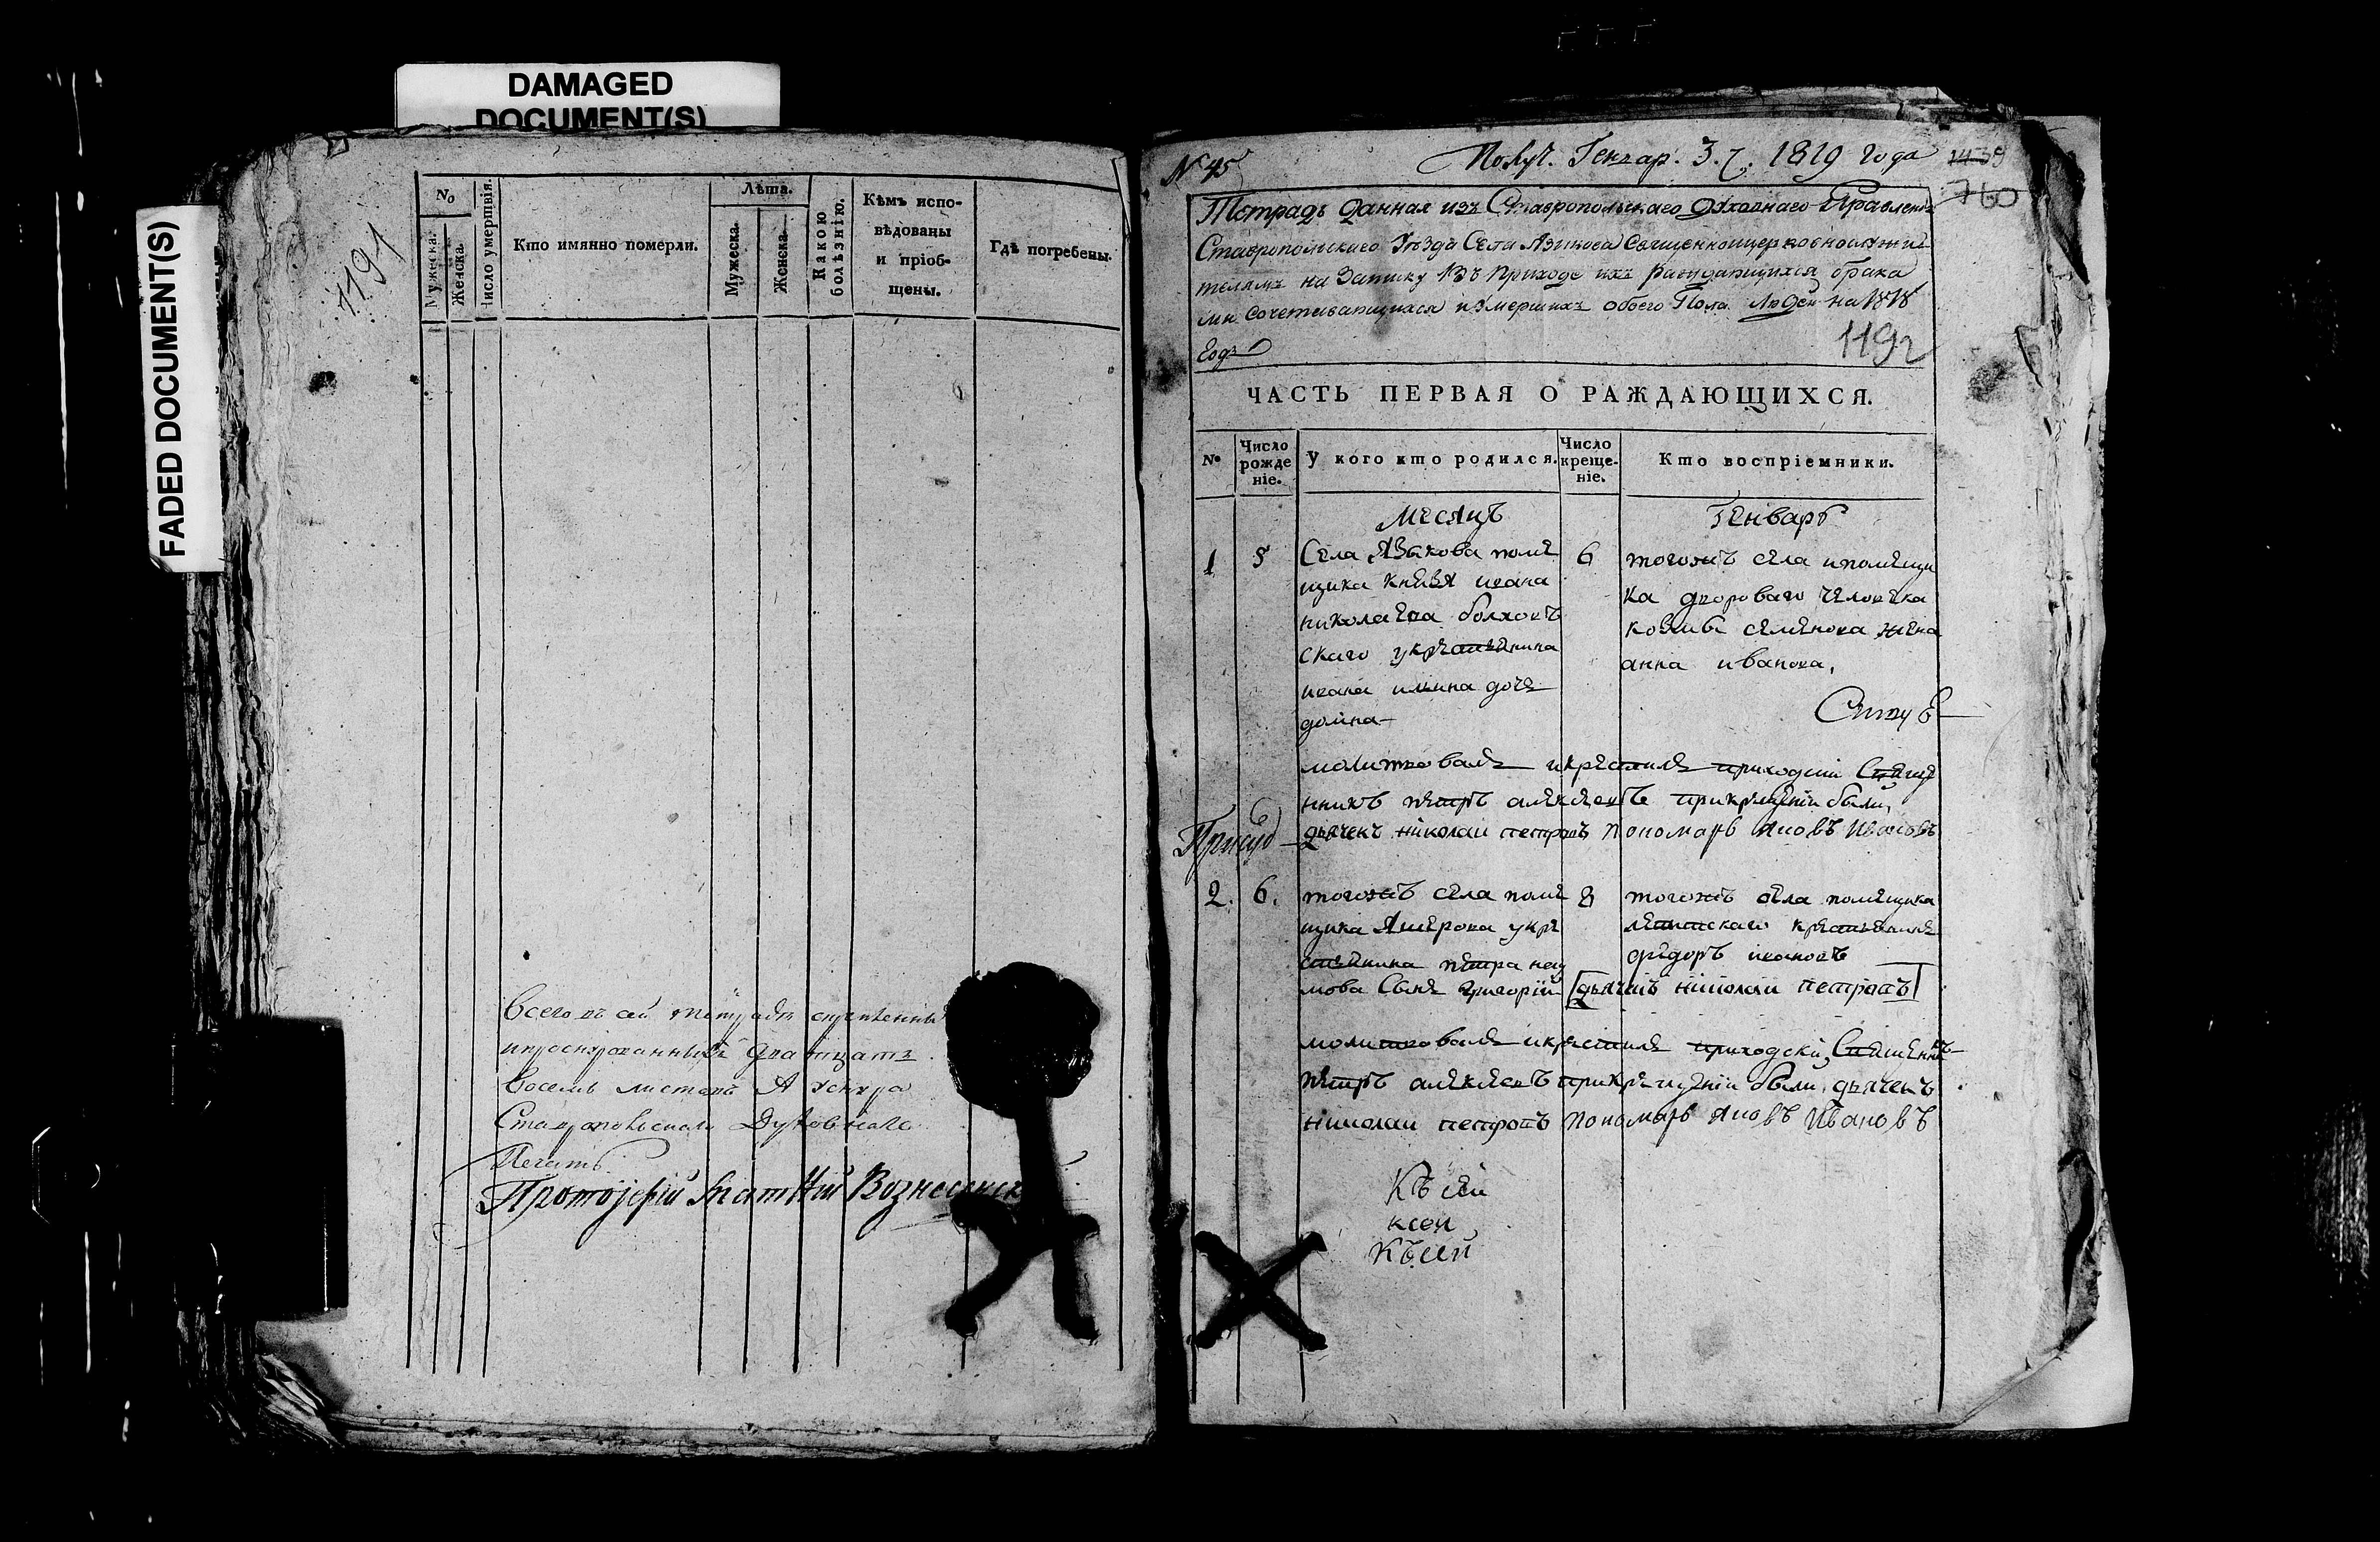 DAMAGED
DOCUMENT(S)
FADED DOCUMENT(S)
1191
№
Мужеска.
Женска.
Число умертвія.
Кто имянно померли.
Лѣта.
Мужеска.
Женска.
Какою
болѣзнію.
Кѣмъ испо-
вѣдованы
и пріоб-
щены.
Гдѣ погребены.
Всего въ сей
дватцать
восемь листовъ
Ставропольскаго Духовнаго
Печать
Протоіерій
N 45
Получ. Генвар. 3. 1819 года
1439
760
Тетрадь данная изъ Ставропольскаго Духовнаго Правленія
Ставропольскаго Уѣзда Села Языкова Священноцерковнослужи
телямъ на Записку въ приходе ихъ раждающихся брака
ми сочетавающихся и умершихъ обоего Пола Людей на 1818
Годъ
1192
ЧАСТЬ ПЕРВАЯ О РАЖДАЮЩИХСЯ.
№
Число
рожде
ніе.
У кого кто родился.
Число
креще-
ніе.
Кто воспріемники.
Месяцъ
Генварь
1
5
Села Языкова поме
щика князя ивана
николаева болховъ
скаго укрестьянина
ивана ильина дочь
домна
6
тогожъ села ипомещи
ка дворового человека
козмы семенова жена
анна иванова,
молитвовалъ икрестилъ приходскій Свяще
нникъ петръ алексеевъ прикрещеніи были,
дьячекъ николаи петровъ пономарь яковъ Ивановъ
2.
6.
тогожъ села поме
щика укре
стьянина петра нау
мова Сынъ григорій
8
тогожъ села помещика
крестьянинъ
федоръ ивановъ
дьячекъ николаи петровъ
молитвовалъ икрестилъ приходскій Священникъ
петръ алексеевъ прикрещеніи были, дьячекъ
николаи петровъ пономарь яковъ Ивановъ
Къ сей
ксеи
Къ сей